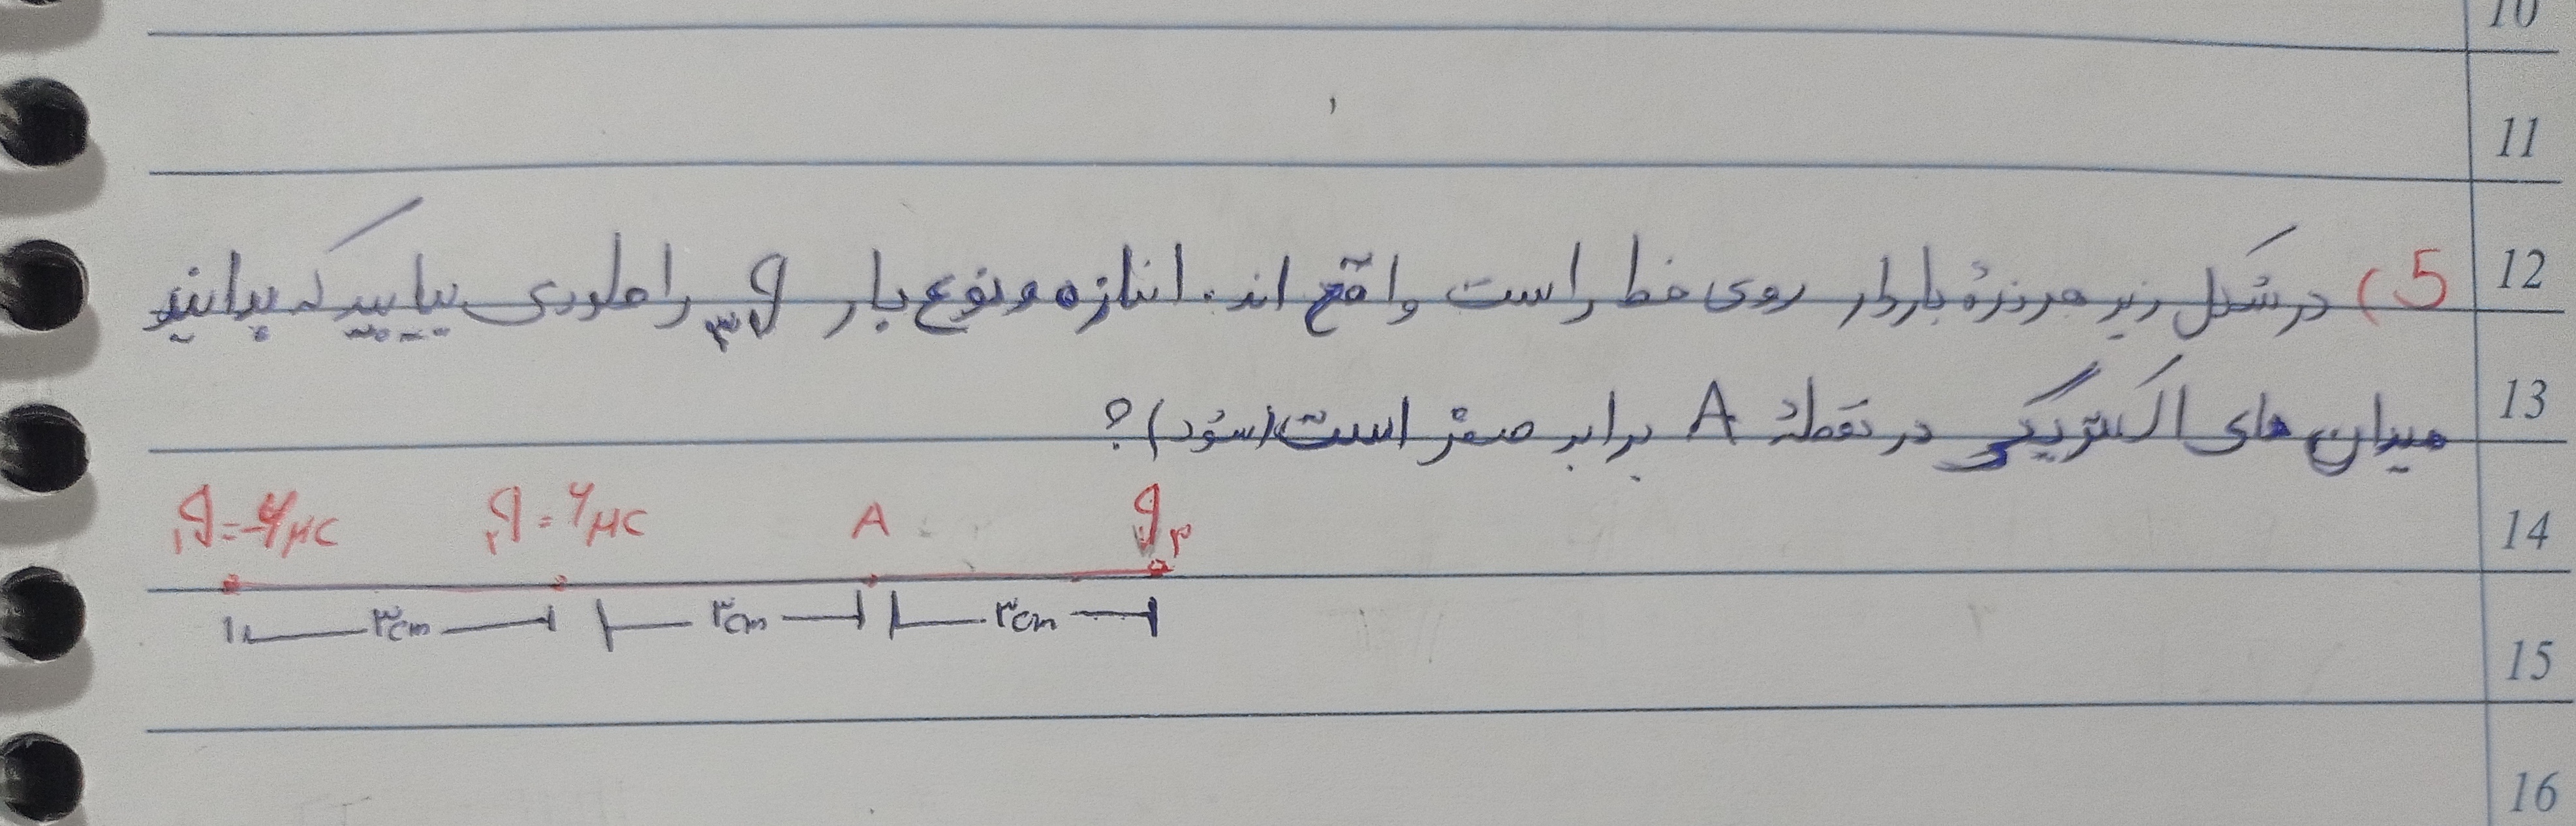 10
11
12
5) در شکل زیر هر ذرهٔ باردار روی خط راست واقع اند. اندازه و نوع بار q۳ را طوری بیابید که برایند
13
میدان های الکتریکی در نقطهٔ A برابر صفر است(شود)؟
14
q۱=-۴μC q۲=۶μC A q۳
۳cm ۳cm ۳cm
15
16